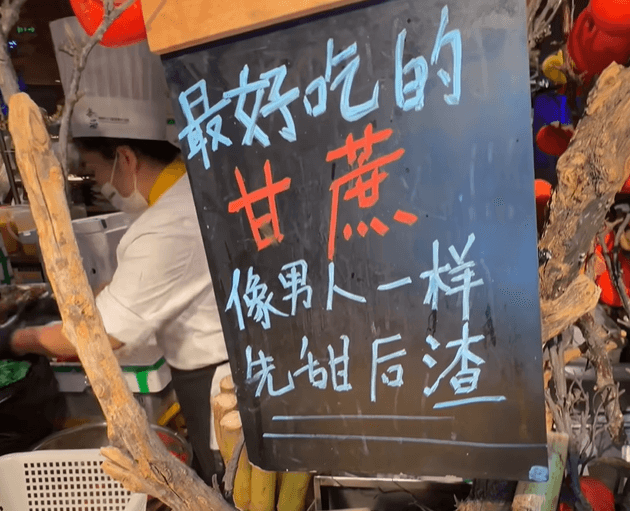 最好吃的
甘蔗
像男人一样
先甜后渣